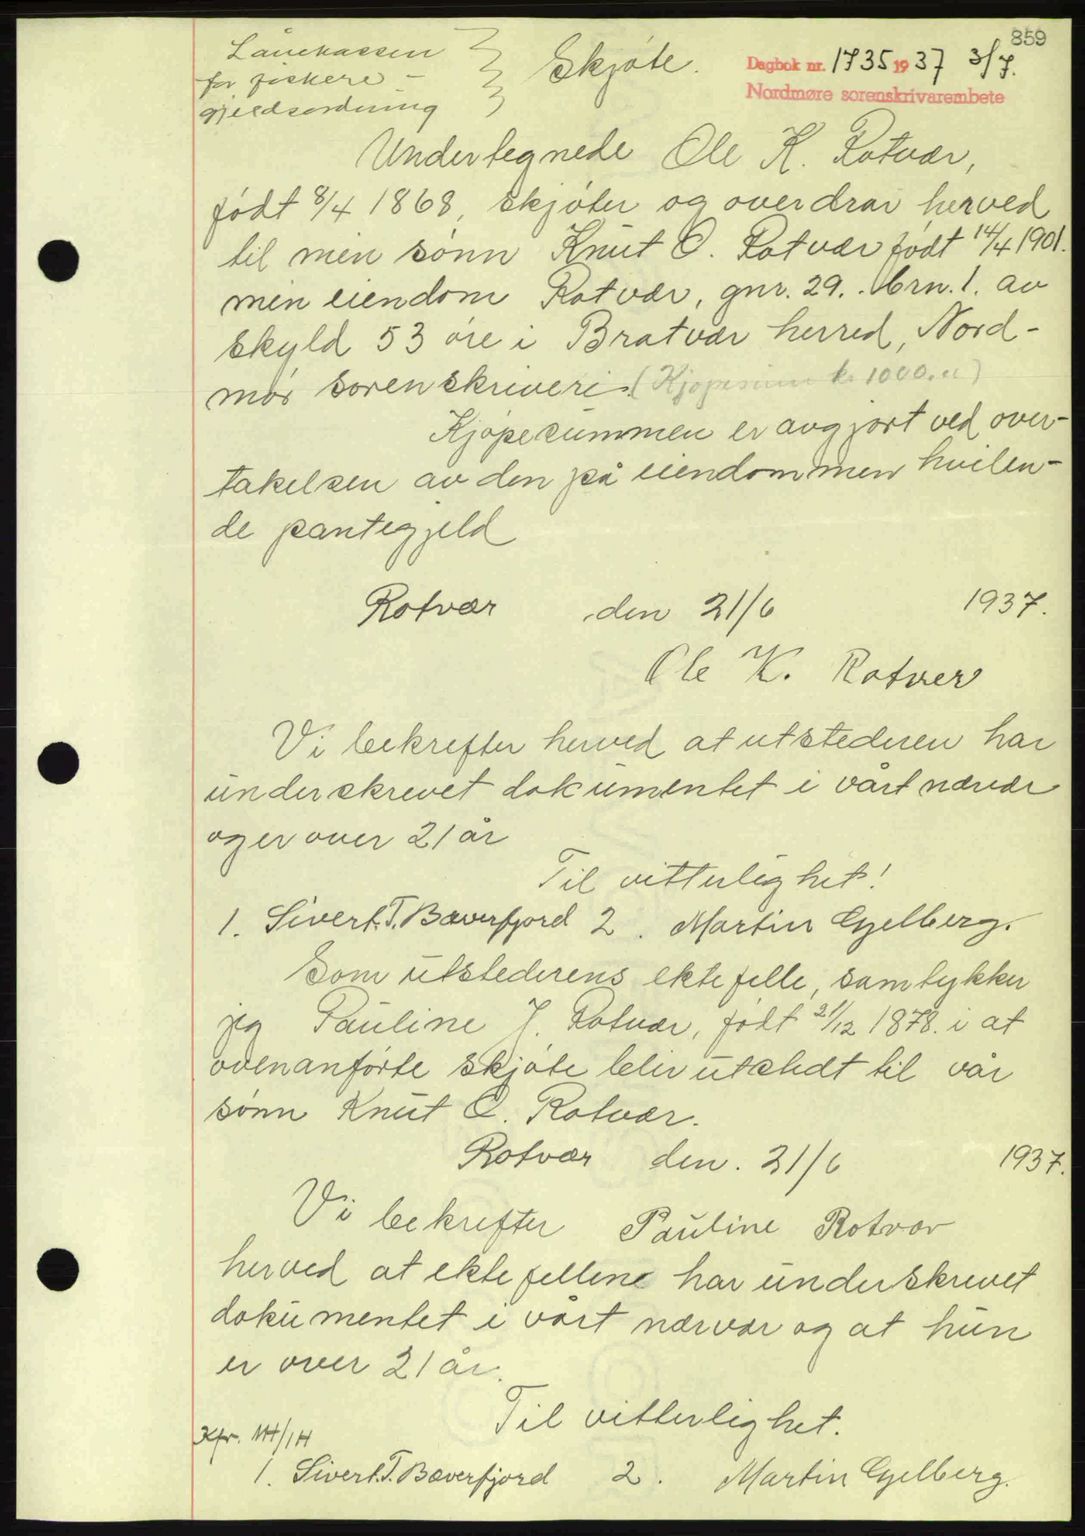 859
Lånekassen
for fiskere -
gjeldsordning
Skjøte.
Dagbok nr. 1735 1937 3/7.
Nordmøre sorenskrivarembete
Undertegnede Ole K. Rotvær,
født 8/4 1868, skjøter og overdrar herved
til min sønn Knut O. Rotvær født 14/4 1901.
min eiendom Rotvær, gnr. 29. brn. 1. av
skyld 53 øre i Bratvær herred, Nord-
mør sorenskriveri. (Kjøpesum kr 1000.00)
Kjøpesummen er avgjort ved over-
takelsen av den på eiendommen hvilen-
de pantegjeld
Rotvær den 21/6 1937.
Ole K. Rotvær
Vi bekrefter herved at utstederen har
underskrevet dokumentet i vårt nærvær
og er over 21 år
Til vitterlighet!
1. Sivert. T. Bæverfjord 2. Martin Gjelberg.
Som utstederens ektefelle, samtykker
jeg Pauline J. Rotvær, født 21/12 1878. i at
ovenanførte skjøte blir utstedt til vår
sønn Knut O. Rotvær.
Rotvær den. 21/6 1937.
Vi bekrefter Pauline Rotvær
herved at ektefellene har underskrevet
dokumentet i vårt nærvær og at hun
er over 21 år.
Til vitterlighet.
Kfr. MH/IH
1. Sivert. T. Bæverfjord 2. Martin Gjelberg.